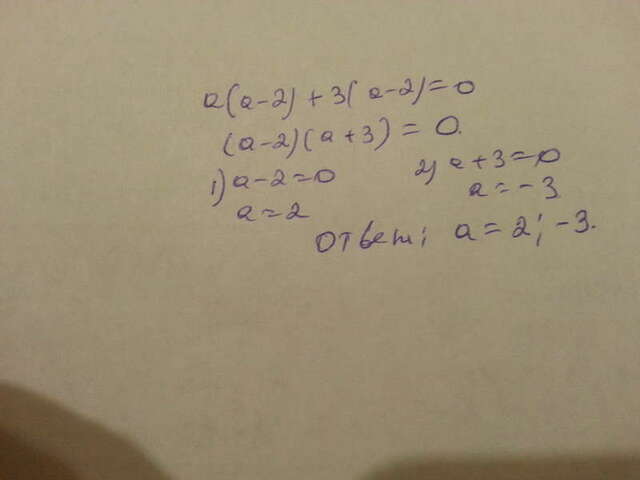 a(a-2)+3(a-2)=0
(a-2)(a+3)=0.
1) a-2=0 2) a+3=0
a=2 a=-3
Ответ: a=2; -3.